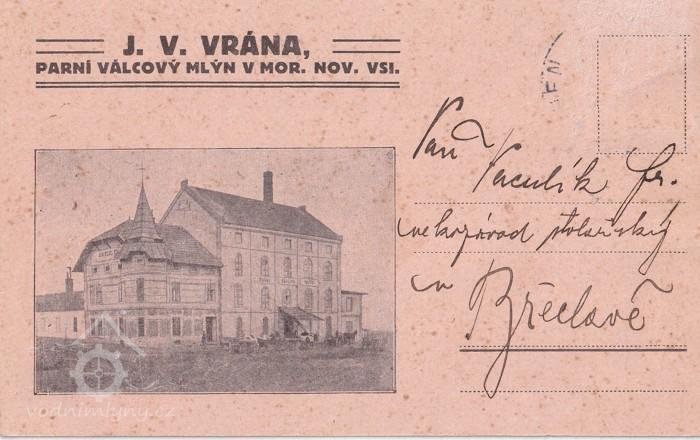 J. V. VRÁNA,
PARNÍ VÁLCOVÝ MLÝN V MOR. NOV. VSI.
Pan
Vaculík Fr.
velkozávod stolařský
v
Břeclavě
vodnimlyny.cz